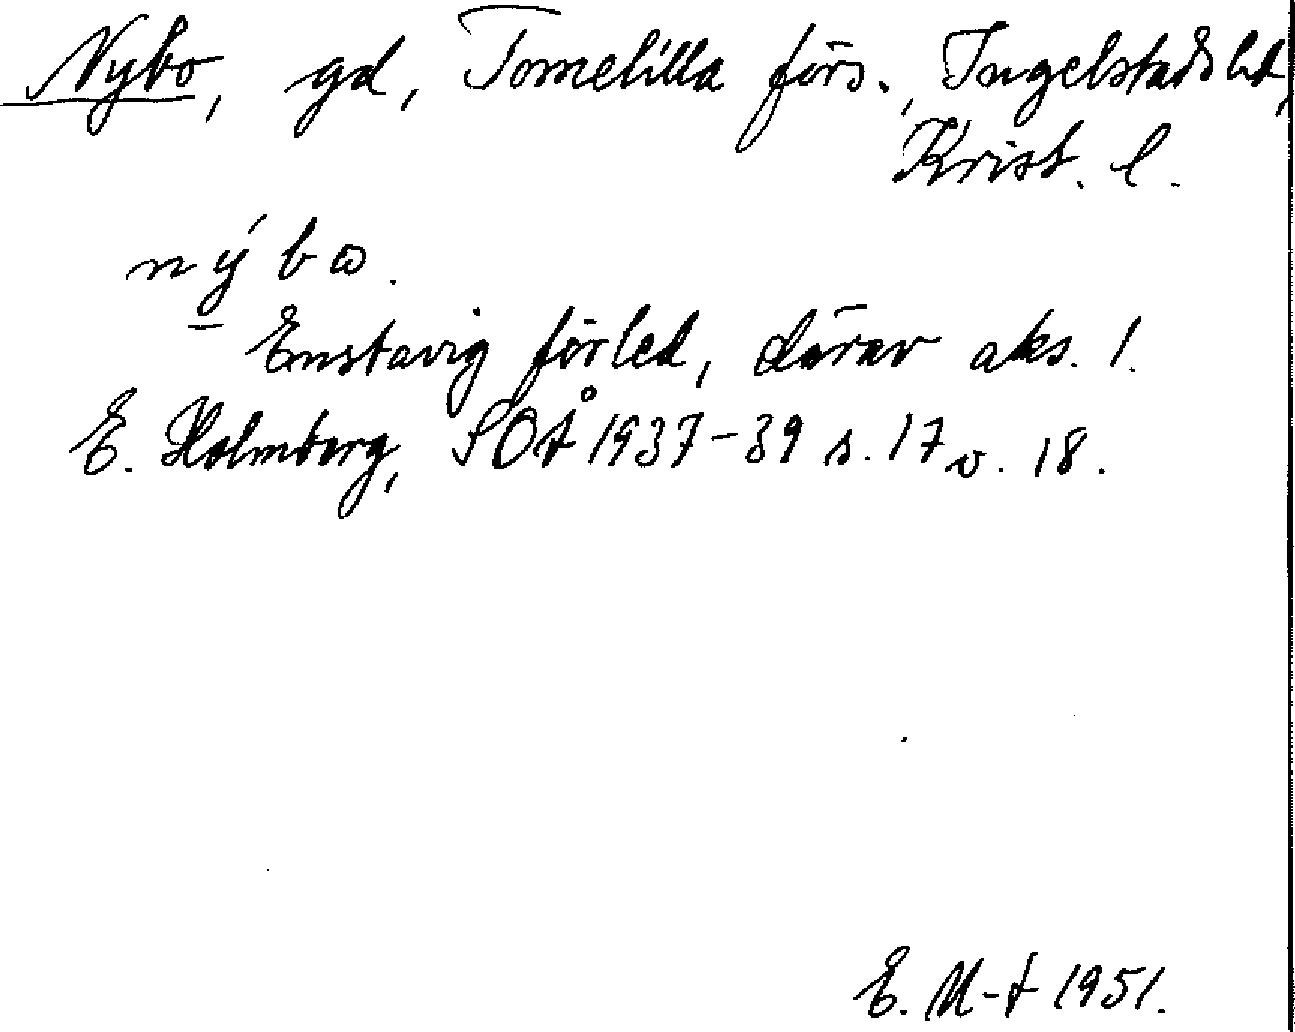 Nybo, gd, Tomelilla förs., Ingelstads hd,
Krist. l.
nýbɷ.
Enstavig förled, därav aks. 1.
E. Holmberg, SOÅ 1937-39 s. 17 o. 18.
E. M-t 1951.